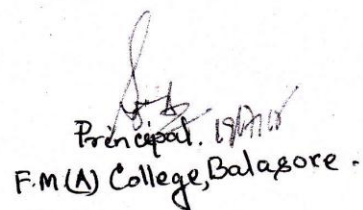 Principal.
F.M (A) College, Balasore.